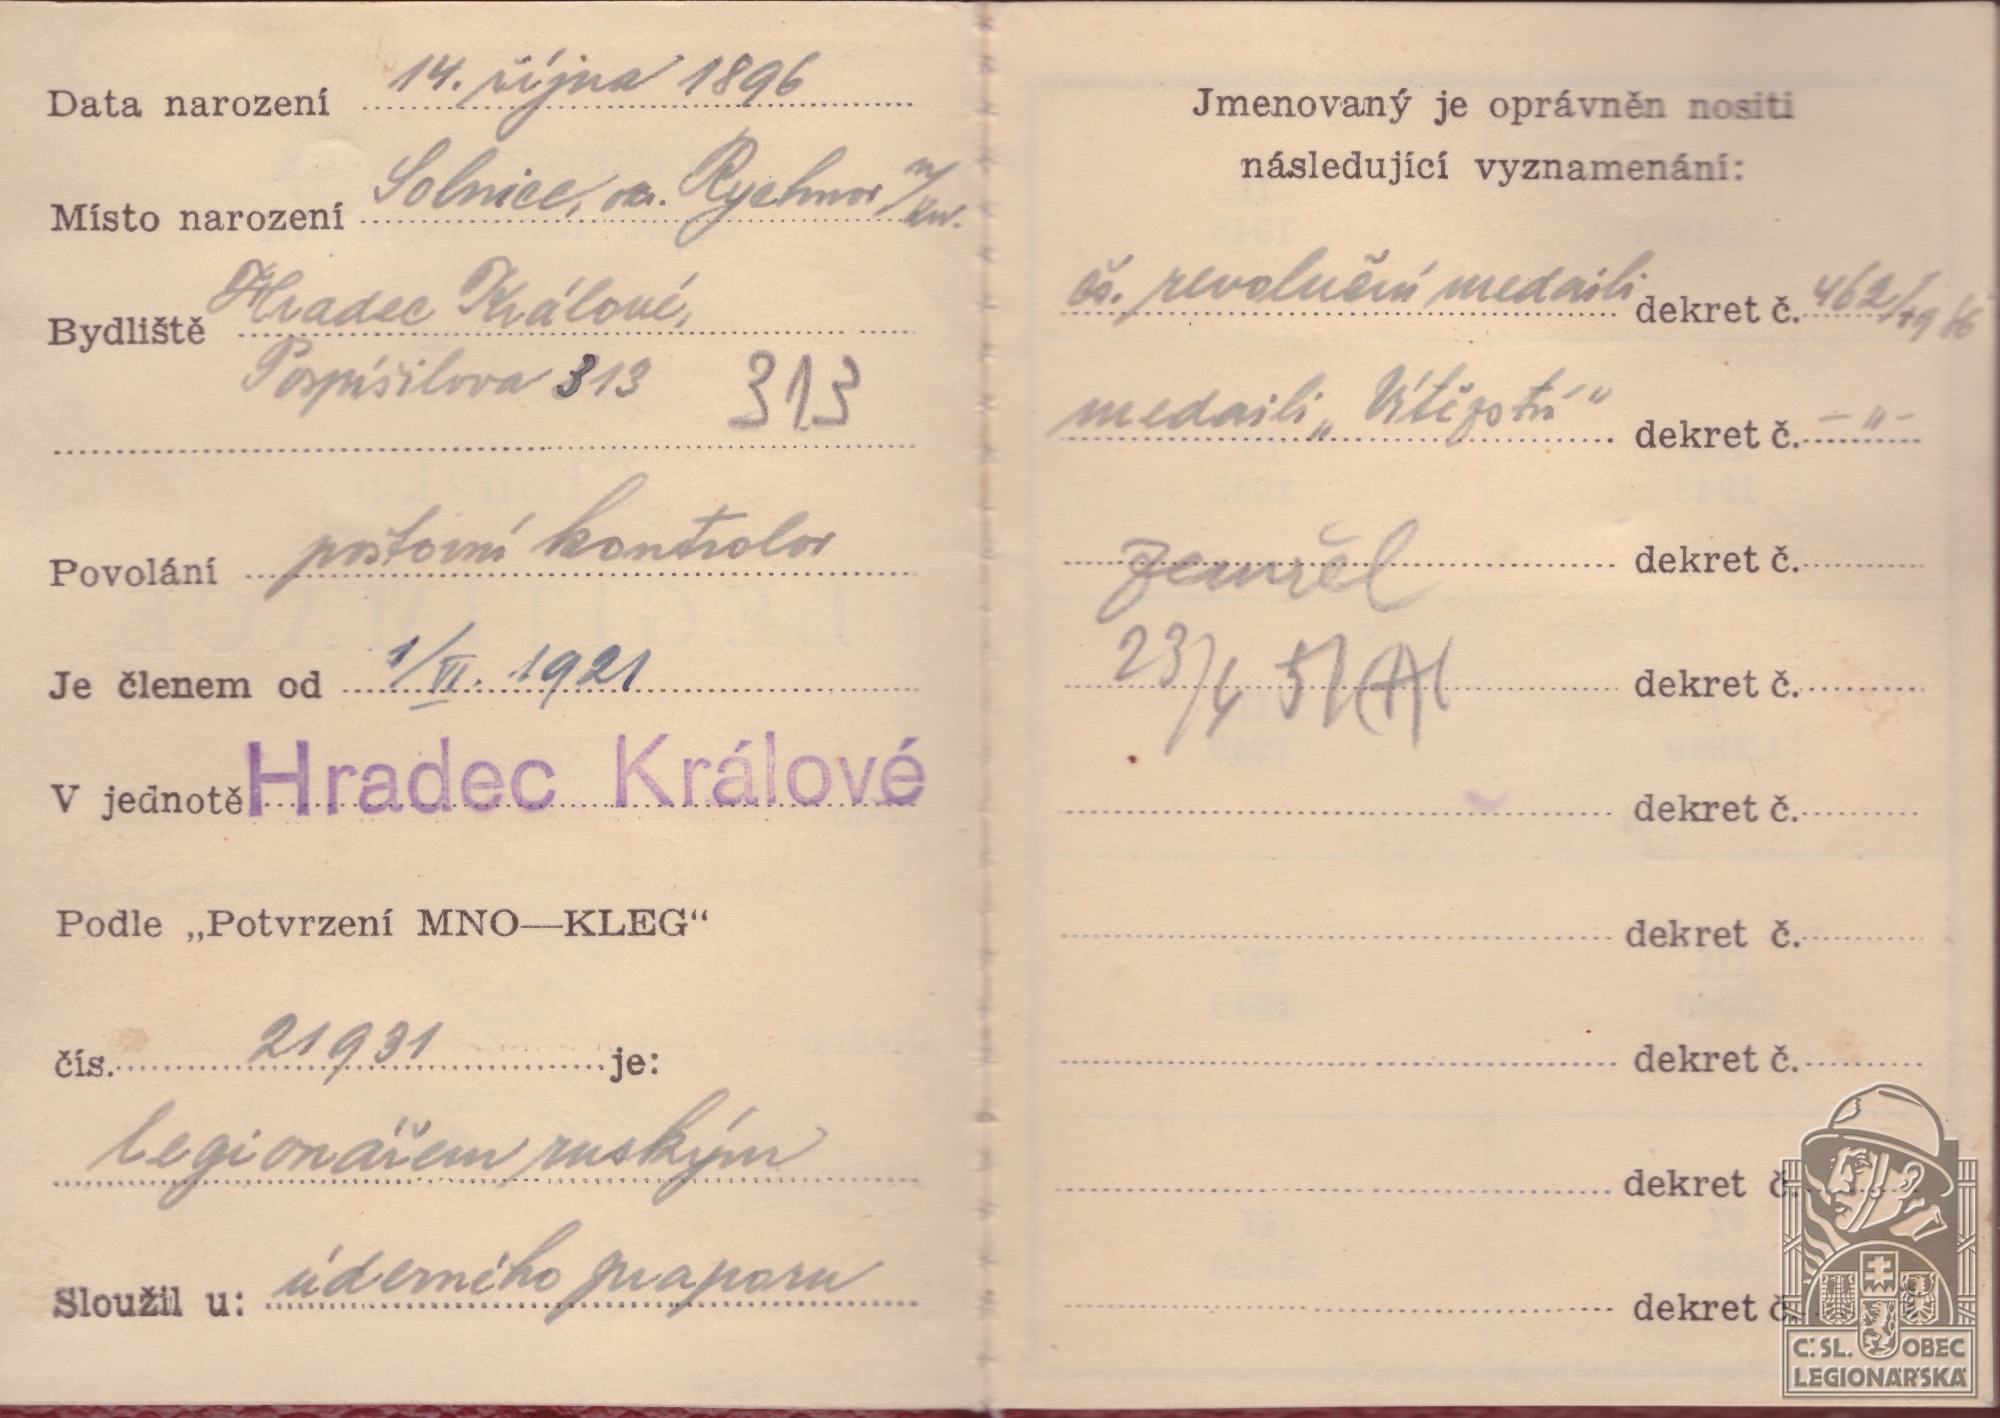 Data narození 14. října 1896
Místo narození Solnice, ok. Rychnov n/Kn.
Bydliště Hradec Králové,
Pospíšilova 313 313
Povolání poštovní kontrolor
Je členem od 1/VI. 1921
V jednotě Hradec Králové
Podle „Potvrzení MNO—KLEG“
čís. 21931 je:
legionářem ruským
Sloužil u: úderného praporu
Jmenovaný je oprávněn nositi
následující vyznamenání:
čs. revoluční medaili dekret č. 462/19
medaili „Vítězství“ dekret č. — „ —
zemřel dekret č.
23/4 51 dekret č.
dekret č.
dekret č.
dekret č.
dekret č.
dekret č.
Č.SL. OBEC
LEGIONÁŘSKÁ